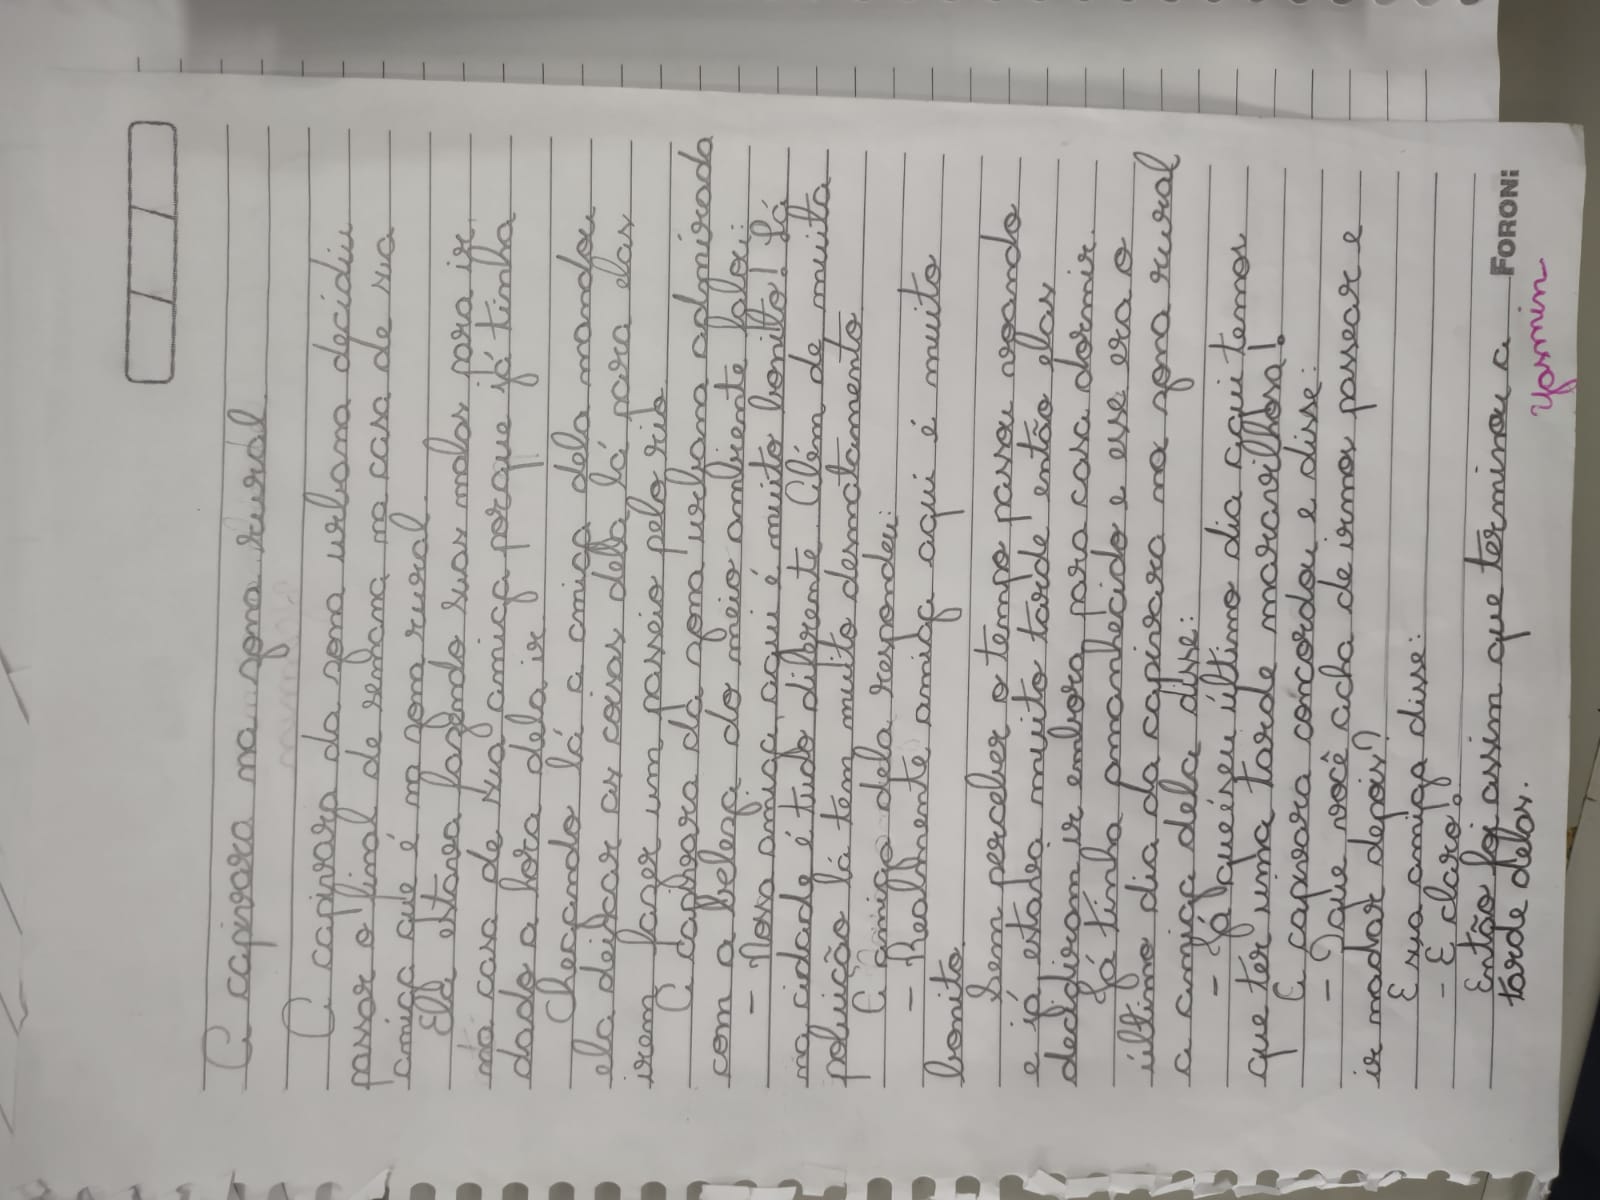 A capivara na zona rural
A capivara da zona urbana decidiu
passar o final de semana na casa de sua
amiga que é m zona rural.
Ela estava fazendo suas malas para ir
na casa de sua amiga porque já tinha
dado a hora dela ir
Checando lá a amiga dela mandou
ela deixar as coisas della lá para elas
irem fazer um passeio pelo rio
A capivara da zona urbana admirada
com a beleza do meio ambiente falou:
- Nosa amiga aqui é muito bonito! Lá
na cidade é tudo diferente. Além de muita
poluicão lá tem muito desmatamento
A amiga dela respondeu:
- Realmente amiga aqui é muito
bonito
Sem perceber o tempo pasou voando
e já estava muito tarde então elas
decidiram ir embora para casa dormir.
Já tinha amanhecido e esse era o
último dia da capivara na zona rural
a amiga dela disse:
- Já que é seu último dia aqui temos
que ter uma tarde maravilhosa!
A capivara concordou e disse:
- Oque você acha de irmos passear e
ir nadar depois?
E sua amiga disse:
- E claro!
Então foi assim que terminou a
tarde delas.
FORONI
Yasmin